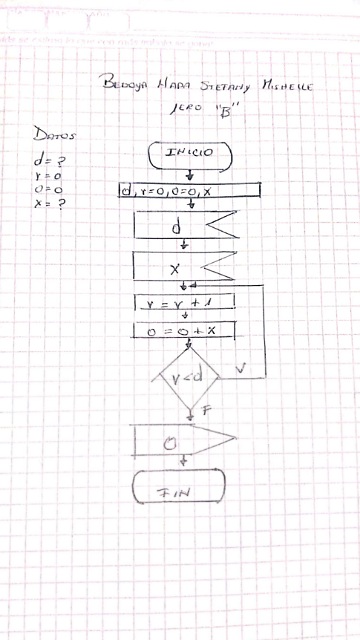 BEDOYA MARA STEFANY MISHELLE
1ERO "B"
DATOS
d = ?
r = 0
O = 0
x = ?
INICIO
d, r=0, O=0, x
d
x
r = r + 1
O = O + x
r < d
V
F
O
FIN